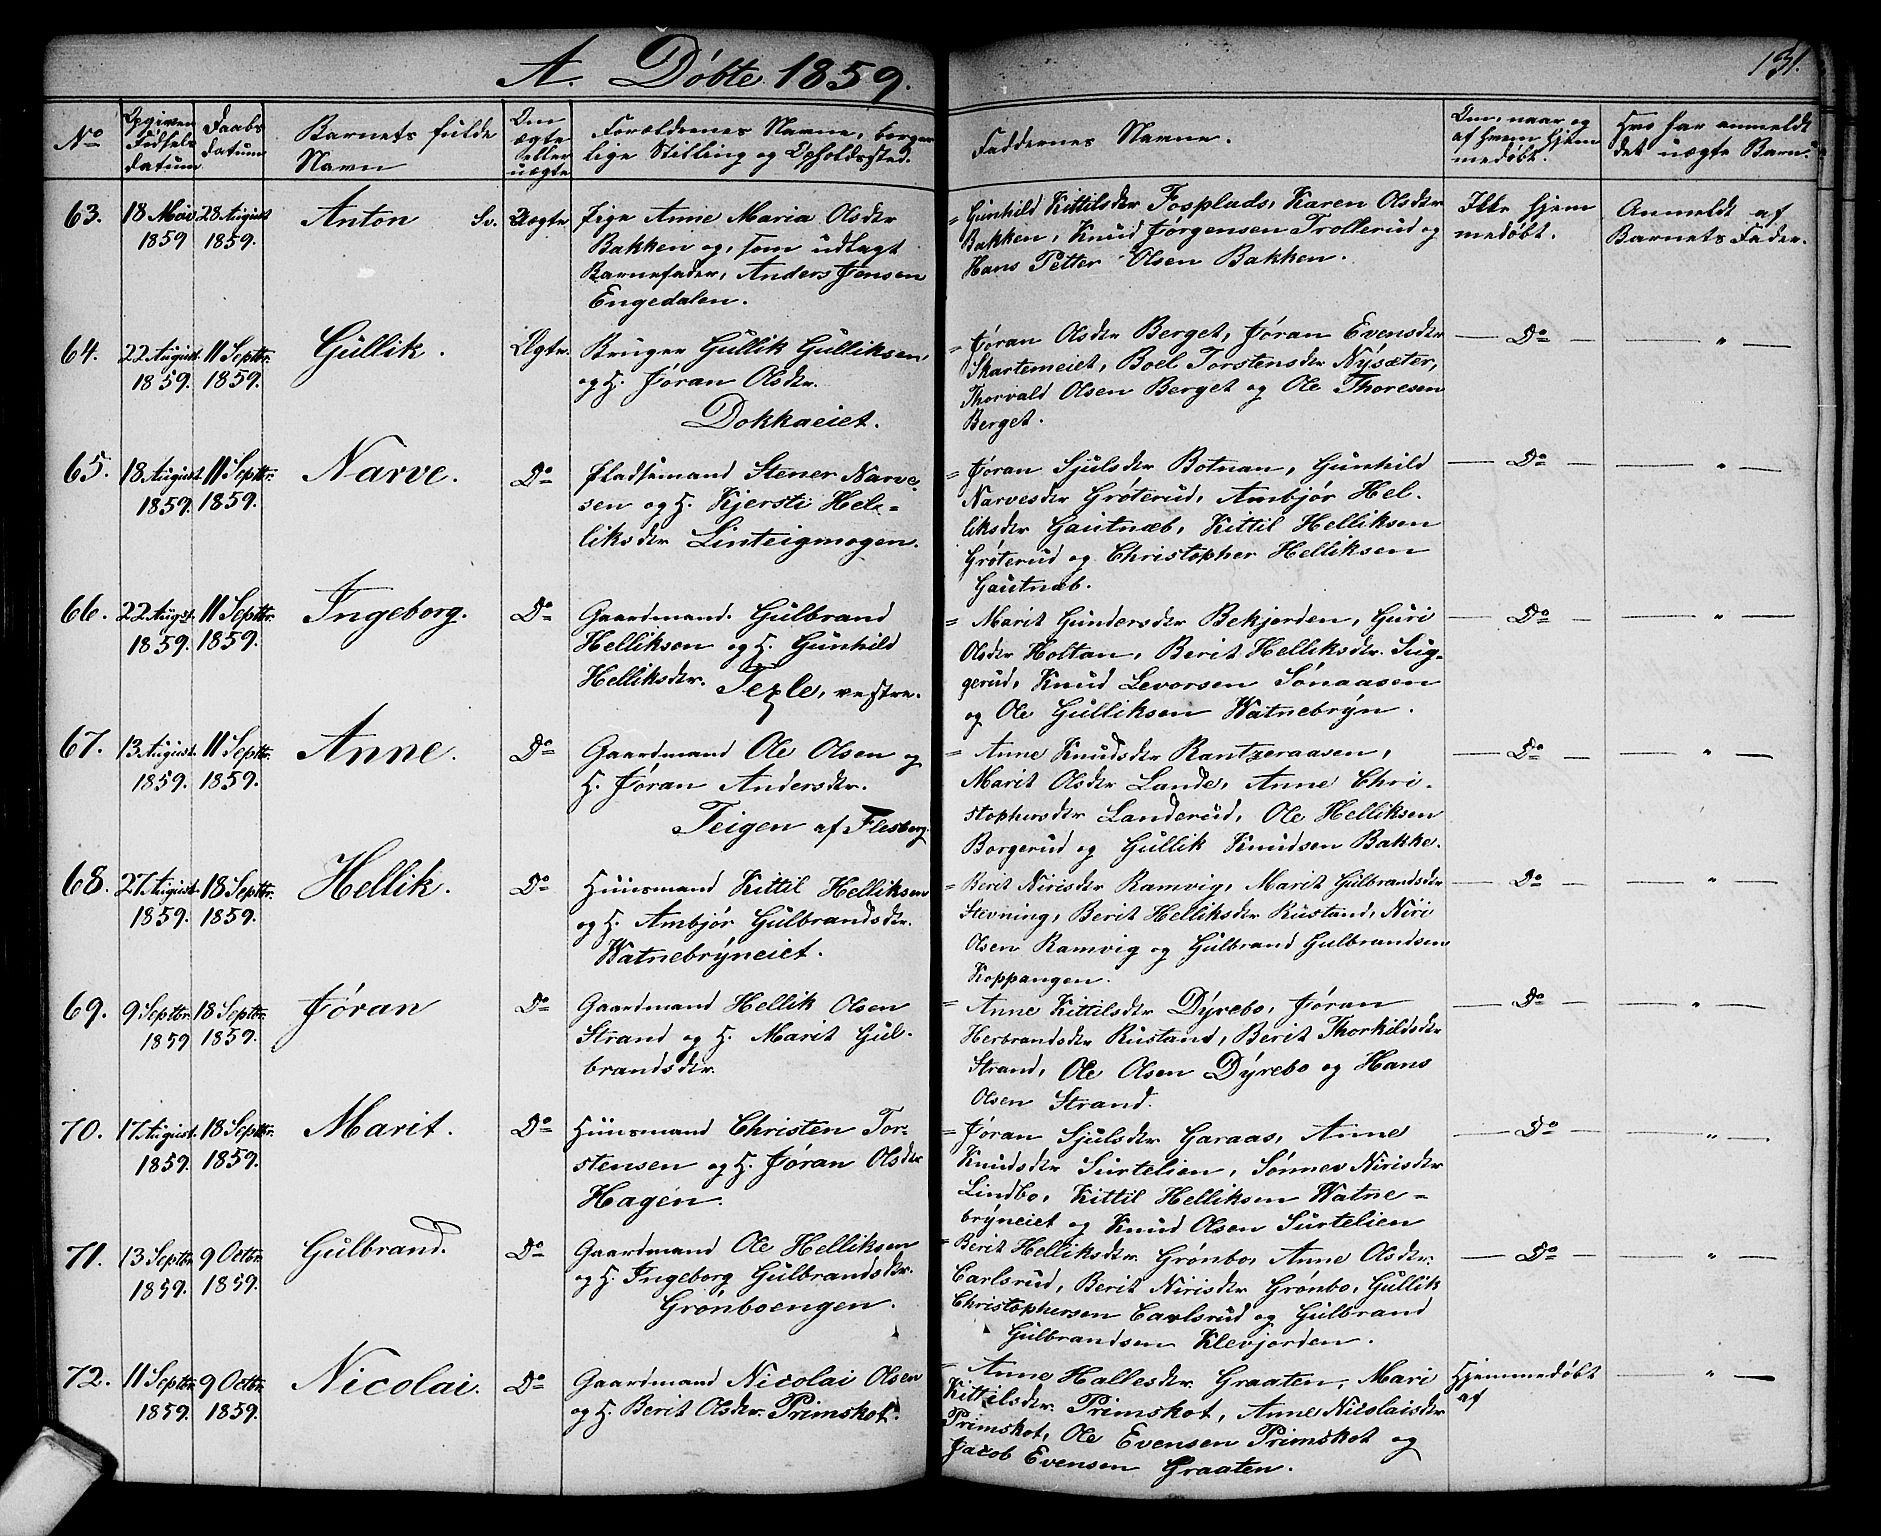 A. Døbte 1859.
131.
No
Opgiven Fødsels datum
Daabs datum
Barnets fulde Navn
Om ægte eller uægte
Forældrenes Navne, borgerlige Stilling og Opholdssted.
Faddernes Navne.
Om, naar og af hvem hjemmedøbt.
Hvo har anmeldt det uægte Barn.
63. 18 Mai 1859 28 August 1859. Anton Sv. Uægte
Pige Anne Maria Olsdtr
Bakken og, som udlagt
Barnefader, Anders Jensen
Engedalen.
= Gunhild Kittilsdtr Fosplads, Karen Olsdtr
Bakken, Knud Jørgensen Trollerud og
Hans Petter Olsen Bakken.
Ikke hjem
medøbt.
Anmeldt af
Barnets Fader.
64. 22 August. 1859. 11 Septbr. 1859. Gullik. Ægte.
Bruger Gullik Gulliksen
og H. Jøran Olsdtr.
Dokkaeiet.
= Jøran Olsdtr Berget, Jøran Evensdtr
Skartemeiet, Boel Torstensdtr Nysæter,
Thorvald Olsen Berget og Ole Thoresen
Berget.
— Do — — " —
65. 18 August 1859. 11 Septbr. 1859. Narve. Do
Pladsemand Stener Narve-
sen og H. Kjersti Hel=
liksdtr Linteigmogen.
= Jøran Sjulsdtr Botnan, Gunhild
Narvesdtr Grøterud, Ambjør Hel-
liksdtr Gautnæb, Kittil Helliksen
Grøterud og Christopher Helliksen
Gautnæb.
— Do — — " —
66. 22 August. 1859. 11 Septbr. 1859. Ingeborg. Do
Gaardmand. Gulbrand
Helliksen og H. Gunhild
Helliksdtr. Texle, vestre.
= Marit Gundersdtr Bekjorden, Guri
Olsdtr Holtan, Berit Helliksdtr. Sug-
gerud, Knud Levorsen Sønaasen
og Ole Gulliksen Watnebryn.
— Do — — " —
67. 13 August. 1859. 11 Septbr. 1859. Anne. Do
Gaardmand Ole Olsen og
H. Jøran Andersdtr.
Teigen af Flesberg.
= Anne Knudsdtr Rantzeraasen,
Marit Olsdtr Lande, Anne Chri-
stophersdtr Landerud, Ole Helliksen
Borgerud og Gullik Knudsen Bakke.
— Do — — " —
68. 27 August. 1859. 18 Septbr. 1859. Hellik. Do
Huusmand Kittil Helliksen
og H. Ambjør Gulbrandsdtr.
Watnebryneiet.
= Berit Nirisdtr Ramvig, Marit Gulbrandsdtr
Stevning, Berit Helliksdtr Rustand, Niri
Olsen Ramvig og Gulbrand Gulbrandsen
Koppangen.
— Do — — " —
69. 9 Septbr. 1859 18 Septbr. 1859. Jøran Do
Gaardmand Hellik Olsen
Strand og H. Marit Gul-
brandsdtr.
= Anne Kittilsdtr Dyrebo, Jøran
Herbrandsdtr Rustand, Berit Thorkildsdtr
Strand, Ole Olsen Dyrebo og Hans
Olsen Strand.
— Do — — " —
70. 17 August. 1859. 18 Septbr. 1859. Marit. Do
Huusmand Christen Tor-
stensen og H. Jøran Olsdtr
Hagen.
= Jøran Sjulsdtr Garaas, Anne
Knudsdtr Surtelien, Sønnev Nirisdtr
Lindbo, Kittil Helliksen Watne=
bryneiet og Knud Olsen Surtelien
— Do — — " —
71. 13 Septbr. 1859. 9 Octbr. 1859. Gulbrand. Do
Gaardmand Ole Helliksen
og H. Ingeborg Gulbrandsdtr.
Grønboengen.
= Berit Helliksdtr. Grønbo, Anne Olsdtr.
Carlsrud, Berit Nirisdtr Grønbo, Gullik
Christophersen Carlsrud og Gulbrand
Gulbrandsen Klevjorden.
— Do — — " —
72. 11 Septbr. 1859. 9 Octbr. 1859. Nicolai. Do
Gaardmand Nicolai Olsen
og H. Berit Olsdtr. Primskot.
= Anne Hallesdtr. Graaten, Mari
Kittilsdtr. Primskot, Anne Nicolaisdtr
Primskot, Ole Evensen Primskot og
Jacob Evensen Graaten.
Hjemmedøbt
af
— " —